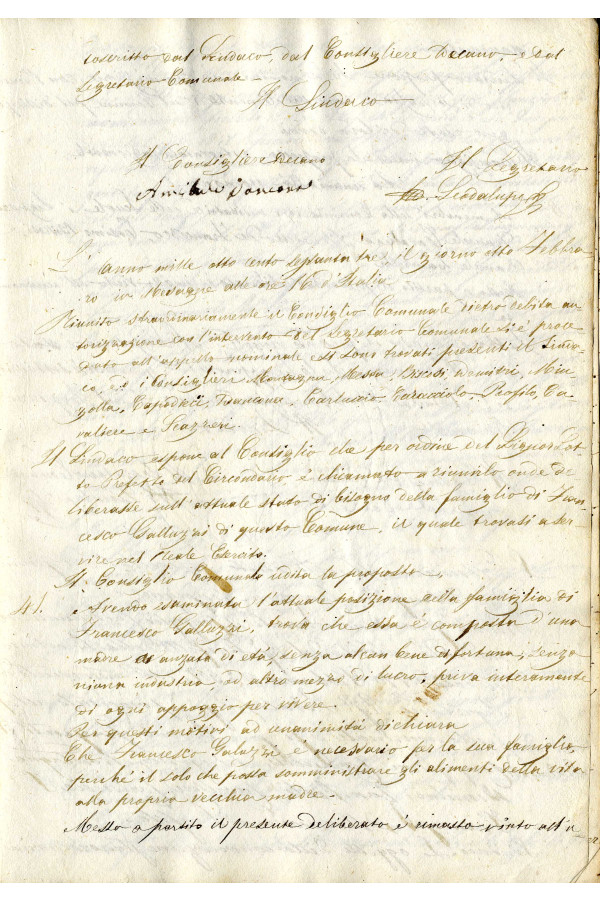 coscritto dal Sindaco, dal Consigliere Decano, e dal
Segretario Comunale
Il Sindaco
Il Consigliere Decano
Il Segretario
L'anno mille otto cento settanta tre, il giorno otto Febbra
ro in Mesagne alle ore 16 d'Italia
Riunito straordinariamente il Consiglio Comunale dietro debita au
torizzazione con l'intervento del Segretario Comunale si è proce
duto all'appello nominale e si sono trovati presenti il Sinda
co, ed i Consiglieri Montagna, Messa, Mur
golla, Capodieci, Carluccio, Caracciolo, Profilo, Ca
valiere e Scazzeri.
Il Sindaco espone al Consiglio che per ordine del Signor Sot
to Prefetto del Circondario è chiamato a riunirlo onde de
liberasse sull'attuale stato di bisogno della famiglia di Fran
cesco Galluzzi di questo Comune, il quale trovasi a ser
vire nel Reale Esercito.
Il Consiglio Comunale udita la proposta,
41. Avendo esaminata l'attuale posizione della famiglia di
Francesco Galluzzi, trova che essa è composta d'una
madre avanzata di età, senza alcun bene di fortuna, senza
niuna industria, od altro mezzo di lucro, priva interamente
di ogni appoggio per vivere.
Per questi motivi ad unanimità dichiara
Che Francesco Galuzzi è necessario per la sua famiglia,
perché il solo che possa somministrare gli alimenti della vita
alla propria vecchia madre.
Messo a partito il presente deliberato è rimasto vinto all'u